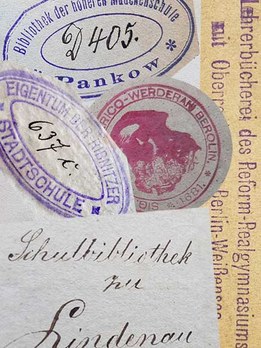 Bibliothek der höheren Mädchenschule
D 405.
Pankow
EIGENTUM DER
STADTSCHULE
637 c.
RICO-WERDERANI BEROLIN
SIG
1681.
Lehrerbücherei des Reform-Realgymnasiums
mit Oberre
Berlin-Weißensee
Schulbibliothek
zu
Lindenau